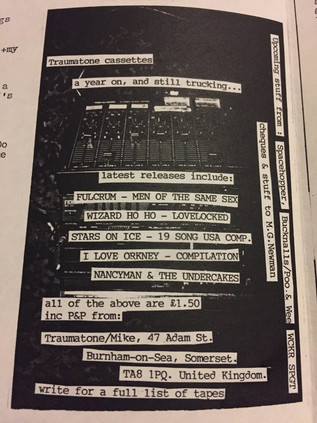 gs
+my
a
's
Do
e
Traumatone cassettes
a year on, and still trucking...
latest releases include:
FULCRUM - MEN OF THE SAME SEX
WIZARD HO HO - LOVELOCKED
STARS ON ICE - 19 SONG USA COMP.
I LOVE ORKNEY - COMPILATION
NANCYMAN & THE UNDERCAKES
all of the above are £1.50
inc P&P from:
Traumatone/Mike, 47 Adam St.
Burnham-on-Sea, Somerset.
TA8 1PQ. United Kingdom.
write for a full list of tapes
Upcoming stuff from : Spacehopper, Bucknalls/Poo & Wee WCKR SPGT
cheques & stuff to M.G.Newman